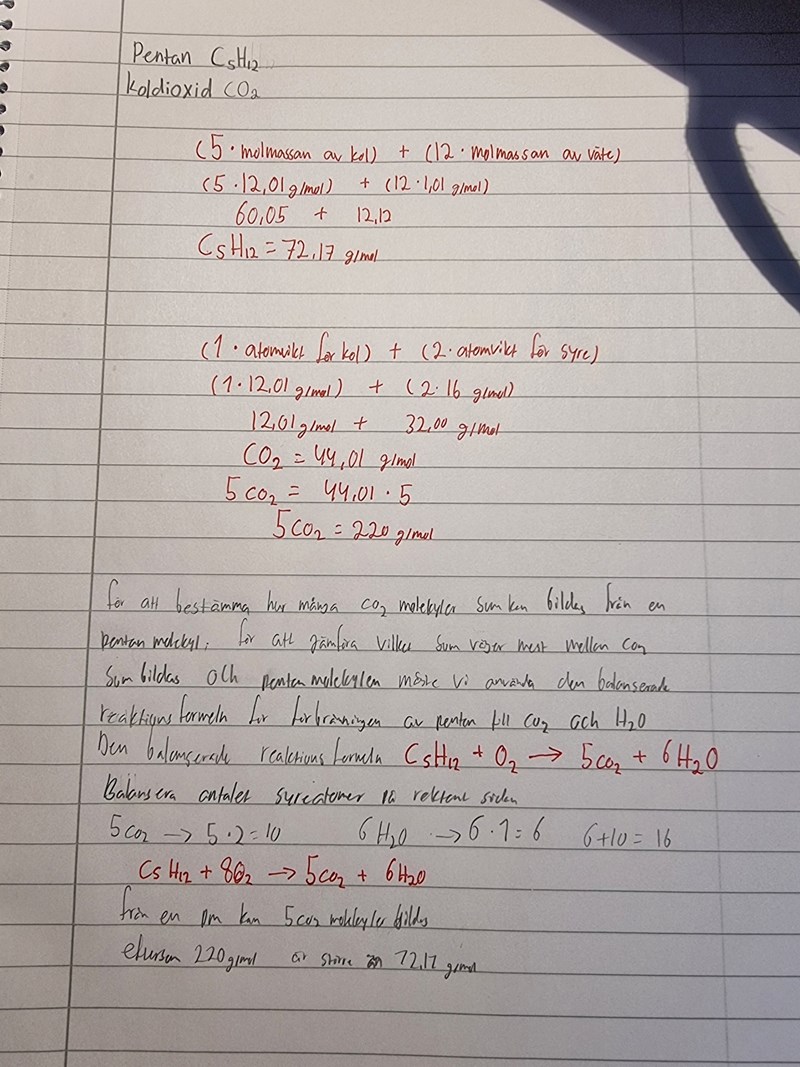 Pentan C₅H₁₂
koldioxid CO₂
(5 · molmassan av kol) + (12 · molmassan av väte)
(5 · 12,01 g/mol) + (12 · 1,01 g/mol)
60,05 + 12,12
C₅H₁₂ = 72,17 g/mol
(1 · atomvikt för kol) + (2 · atomvikt för syre)
(1 · 12,01 g/mol) + (2 · 16 g/mol)
12,01 g/mol + 32,00 g/mol
CO₂ = 44,01 g/mol
5 CO₂ = 44,01 · 5
5 CO₂ = 220 g/mol
för att bestämma hur många CO₂ molekyler sum kan bildas från en
pentan molekyl, för att jämföra vilket sum väger mest mellan CO₂
sum bildas och pentan molekylen måste vi använda den balanserade
reaktions formeln för förbränningen av pentan till CO₂ och H₂O
Den balanserade reaktions formeln C₅H₁₂ + O₂ → 5CO₂ + 6H₂O
Balansera antalet syreatomer på sidan
5CO₂ → 5 · 2 = 10 6 H₂O → 6 · 1 = 6 6 + 10 = 16
C₅H₁₂ + 8O₂ → 5CO₂ + 6H₂O
från en pm kan 5CO₂ molekyler bildas
220 g/mol är större än 72,17 g/mol